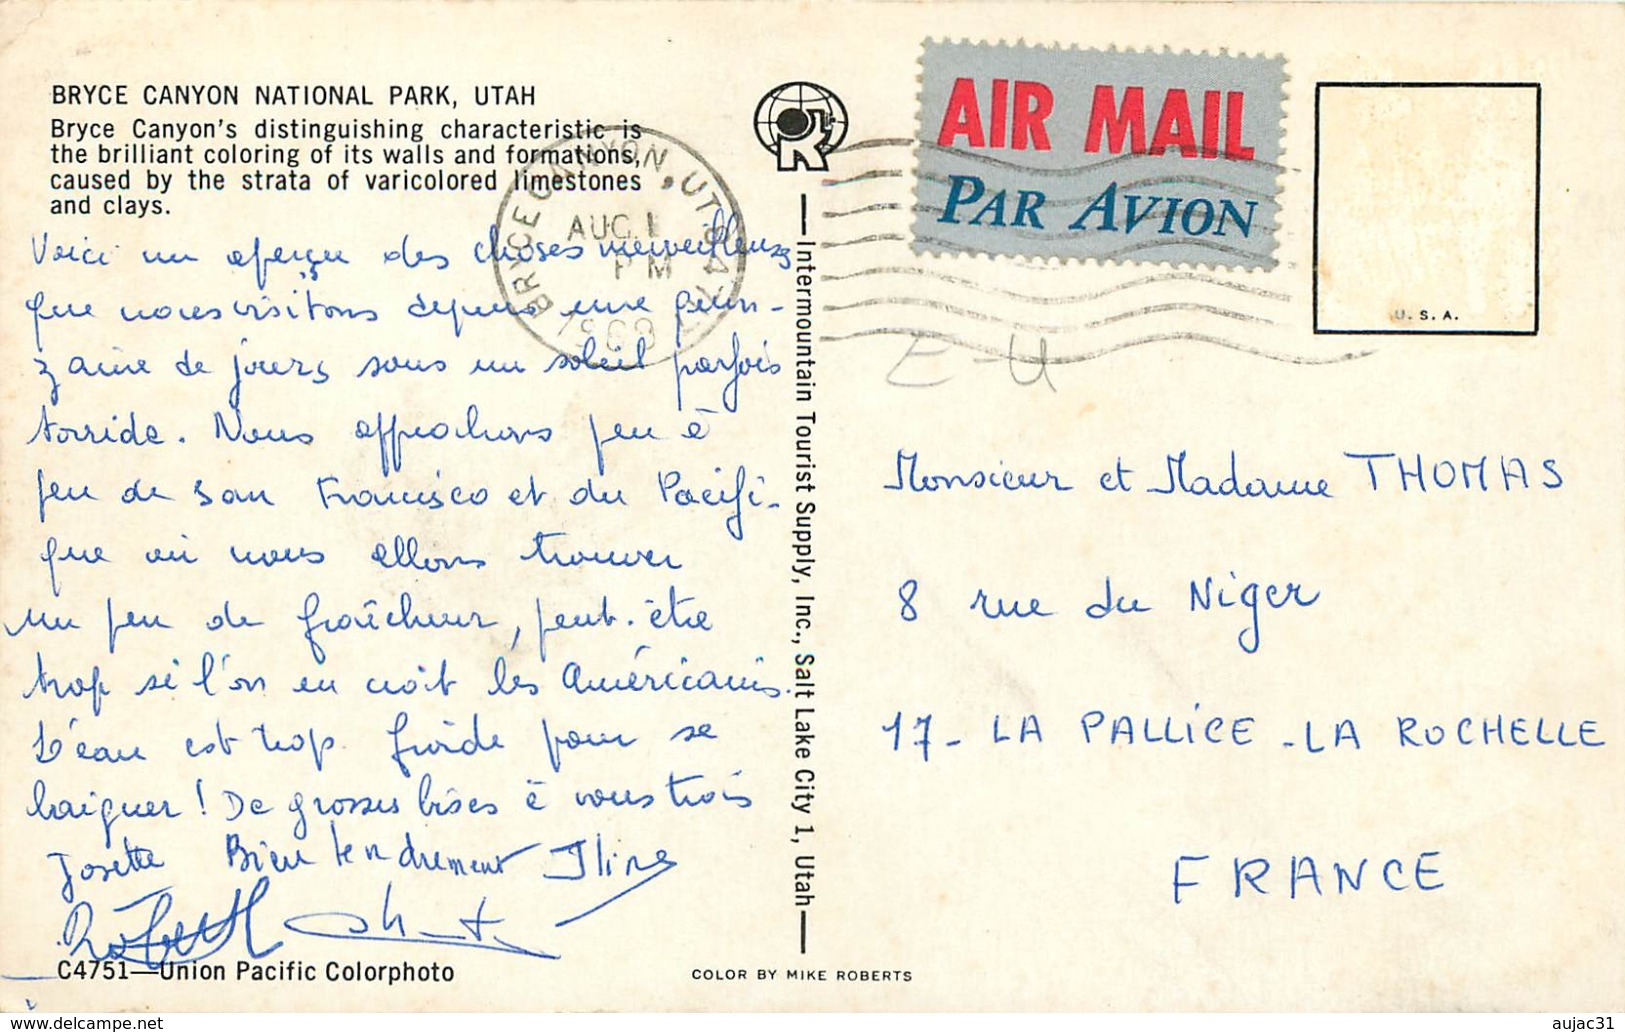 BRYCE CANYON NATIONAL PARK, UTAH
Bryce Canyon's distinguishing characteristic is
the brilliant coloring of its walls and formations,
caused by the strata of varicolored limestones
and clays.
Voici un aperçu des choses merveilleuses
que nous visitons depuis une quin-
zaine de jours sous un soleil parfois
torride. Nous approchons peu à
peu de San Francisco et du Pacifi-
que où nous allons trouver
un peu de fraîcheur, peut-être
trop si l'on en croit les Américains.
L'eau est trop froide pour se
baigner! De grosses bises à vous trois
Josette Bien tendrement
C4751—Union Pacific Colorphoto
BRYCE CANYON, UT 84717
AUG 1
PM
Intermountain Tourist Supply, Inc., Salt Lake City 1, Utah
COLOR BY MIKE ROBERTS
AIR MAIL
PAR AVION
U.S.A.
E-U
Monsieur et Madame THOMAS
8 rue du Niger
17- LA PALLICE - LA ROCHELLE
FRANCE
https://www.delcampe.net
aujac31